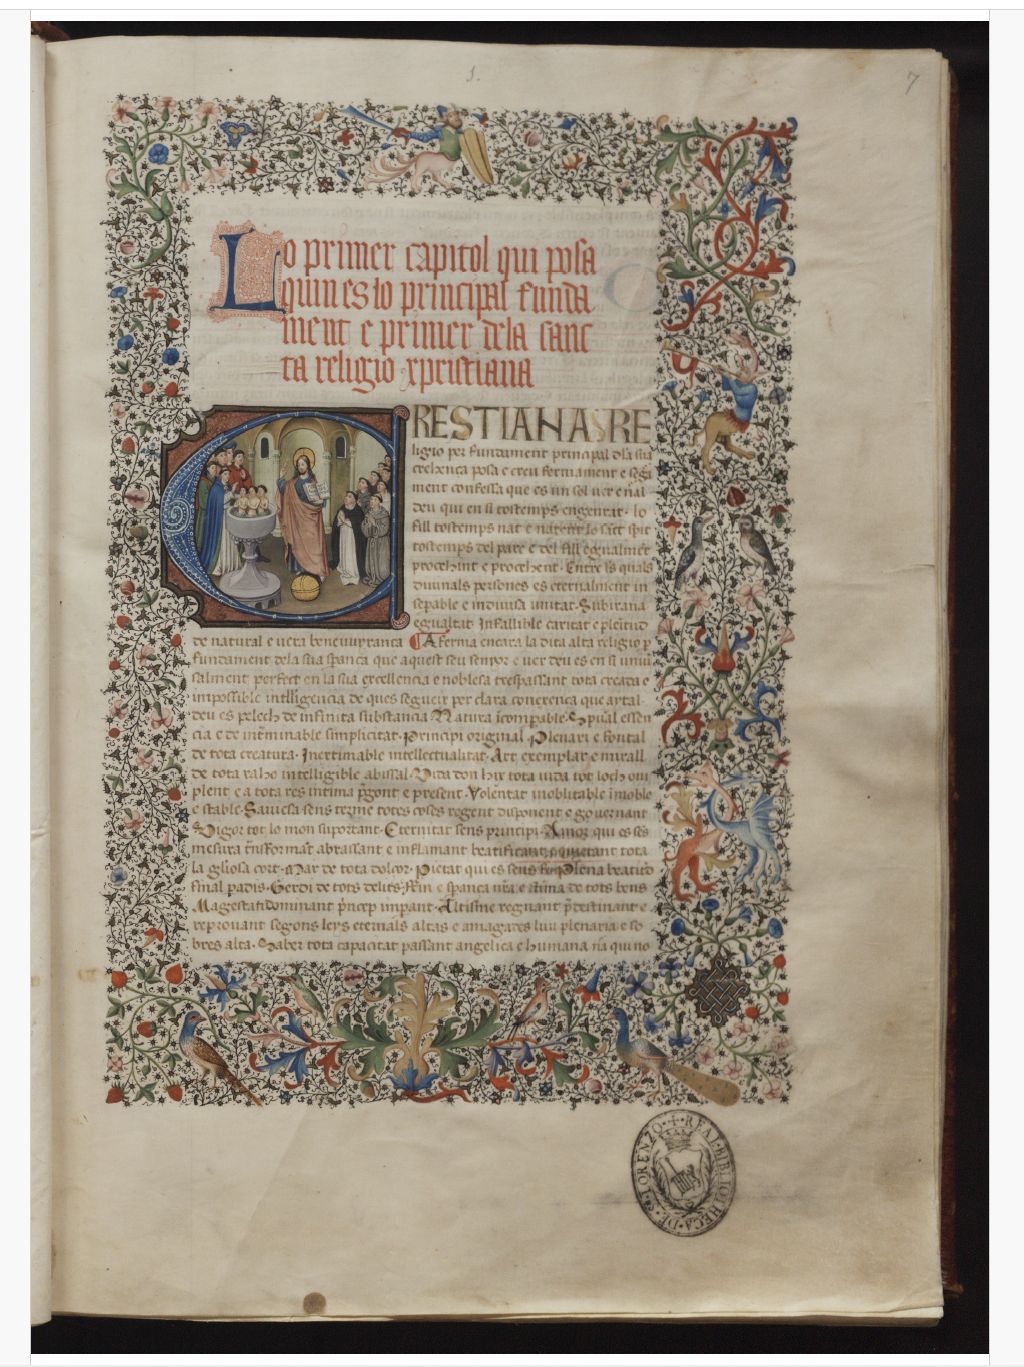 1.
7
Lo primer capitol qui posa
quin es lo principal funda
ment e primer dela sanc
ta religio xpristiana
CRESTIANAS RE
ligio per fundament principal dla sua
crehença posa e creu fermament e
ment confessa que es un sol ver e
deu qui en si tostemps engenrat · lo
fill tostemps nat e lo sãt spit
tostemps del pare e del fill egualmẽt
procehint e procehent · Entre ls quals
divinals persones es eternalment in
sepable e indivisa unitat · Subirana
egualtat Infallible caritat e plenitud
de natural e vera
¶ Aferma encara la dita alta religio p
fundament dela sua spança que aquest seu senyor e ver deu es en si univ
salment perfect en la sua excellencia e noblesa trespassant tota creata e
impossible intelligencia de ques segueix per clara que aytal
deu es pelech de infinita substancia Natura ĩcompable · Spũal essen
cia e de intminable simplicitat · Principi original Plenari e fontal
de tota creatura · Inextimable intellectualitat · Art exemplar e mirall
de tota raho intelligible abissal · Vida don hix tota vida tot loch om
plent e a tota res intima e present · Volentat inoblitable ĩmoble
e stable · Saviesa sens terme totes coses regent disponent e governant
Vigor tot lo mon suportant · Eternitat sens principi · Amor qui es sẽs
mesura abrassant e inflamant beatificant e quietant tota
la gliosa cort · Mar de tota dolçor · Pietat qui es sens fi · Plena
final · de tots delits · Fin e spança nr̃a e de tots bens
Magestat dominant pñcep impant · Altisme regnant pdestinant e
reprovant segons leys eternals altas e amagades plenaria e so
bres alta · Saber tota capacitat passant angelica e humana qui no
REAL BIBLIOTHECA DE S. LORENZO